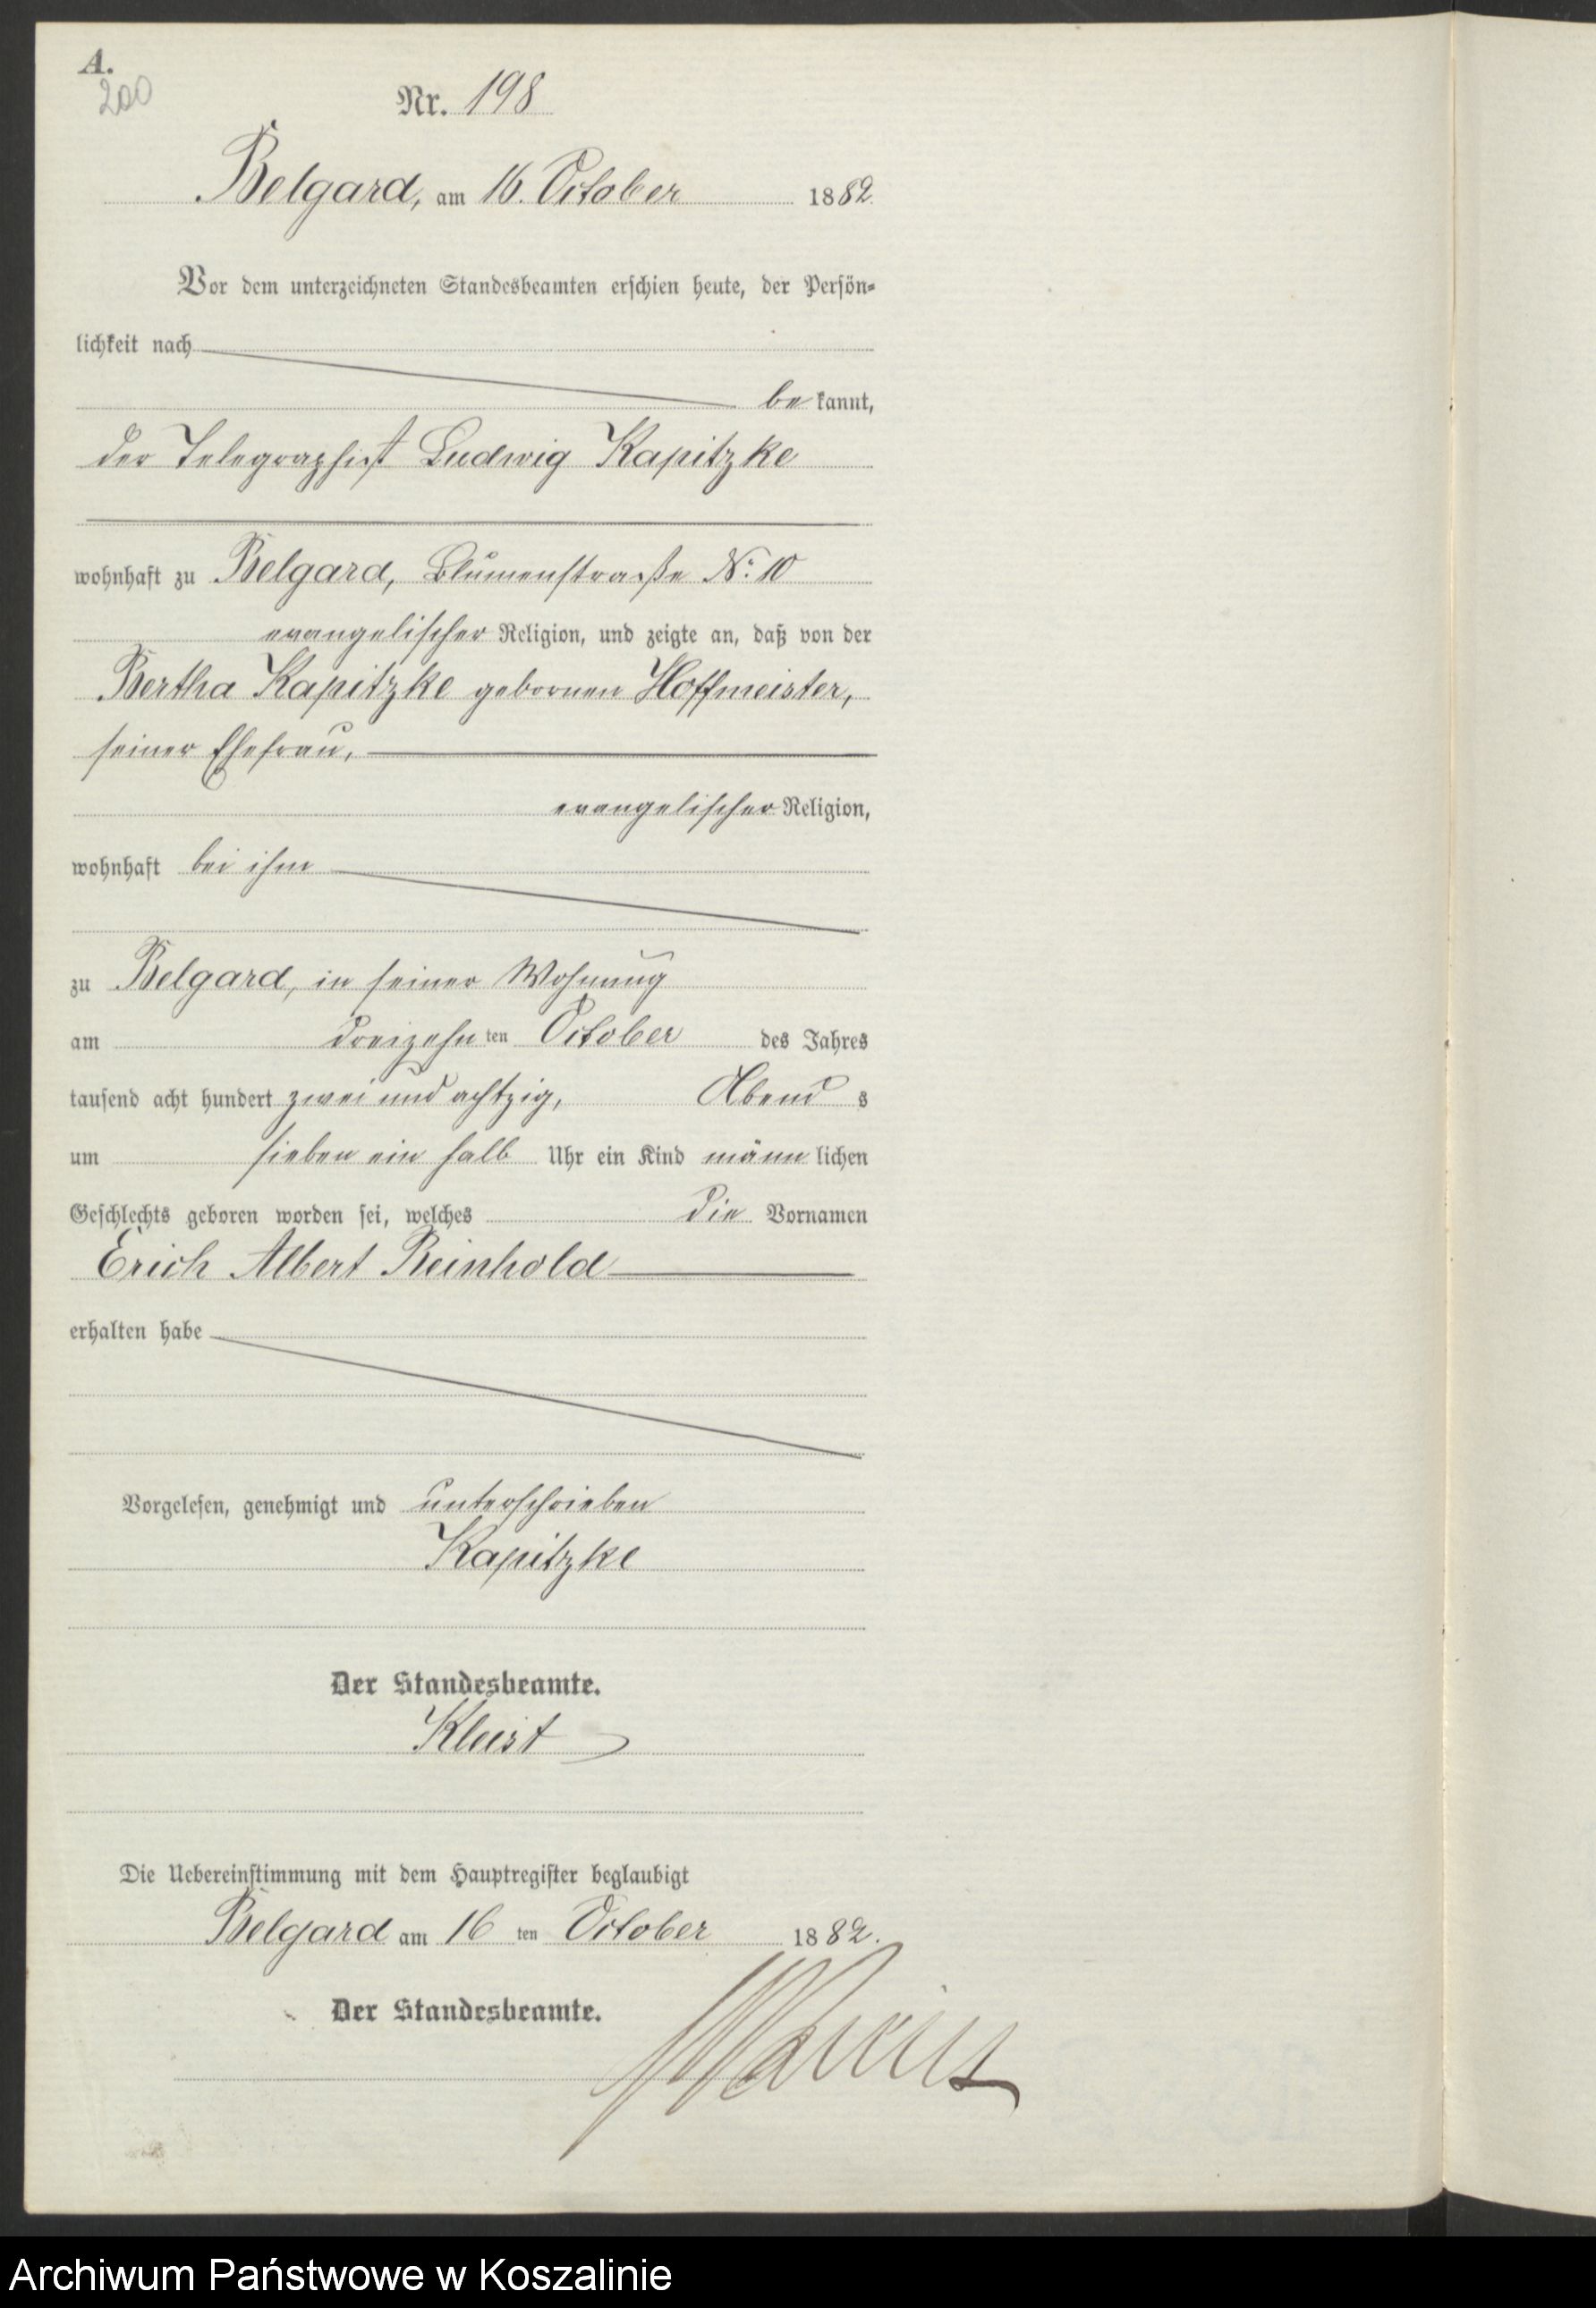 A.
200
Nr. 198
Belgard, am 16. October 1882.
Vor dem unterzeichneten Standesbeamten erschien heute, der Persön-
lichkeit nach
be kannt,
der Telegraphist Ludwig Kapitzke
wohnhaft zu Belgard, Blumenstraße No. 10
evangelischer Religion, und zeigte an, daß von der
Bertha Kapitzke gebornen Hoffmeister,
seiner Ehefrau,
evangelischer Religion,
wohnhaft bei ihm
zu Belgard, in seiner Wohnung
am dreizehn ten October des Jahres
tausend acht hundert zwei und achtzig, Abend s
um sieben ein halb Uhr ein Kind männ lichen
Geschlechts geboren worden sei, welches die Vornamen
Erich Albert Reinhold
erhalten habe
Vorgelesen, genehmigt und unterschrieben
Kapitzke
Der Standesbeamte.
Kleist
Die Uebereinstimmung mit dem Hauptregister beglaubigt
Belgard am 16 ten October 1882.
Der Standesbeamte.
Archiwum Państwowe w Koszalinie